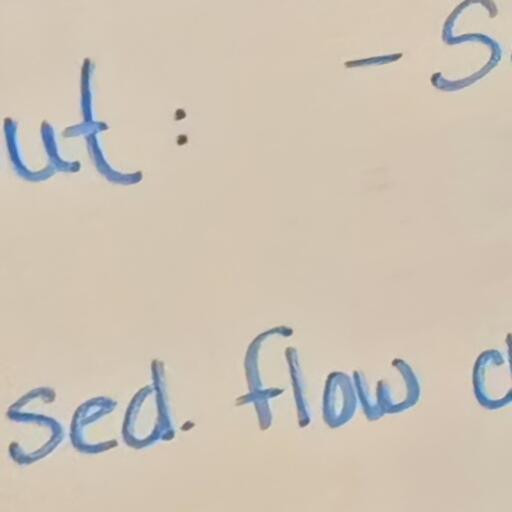 ut: - S
sed. flow